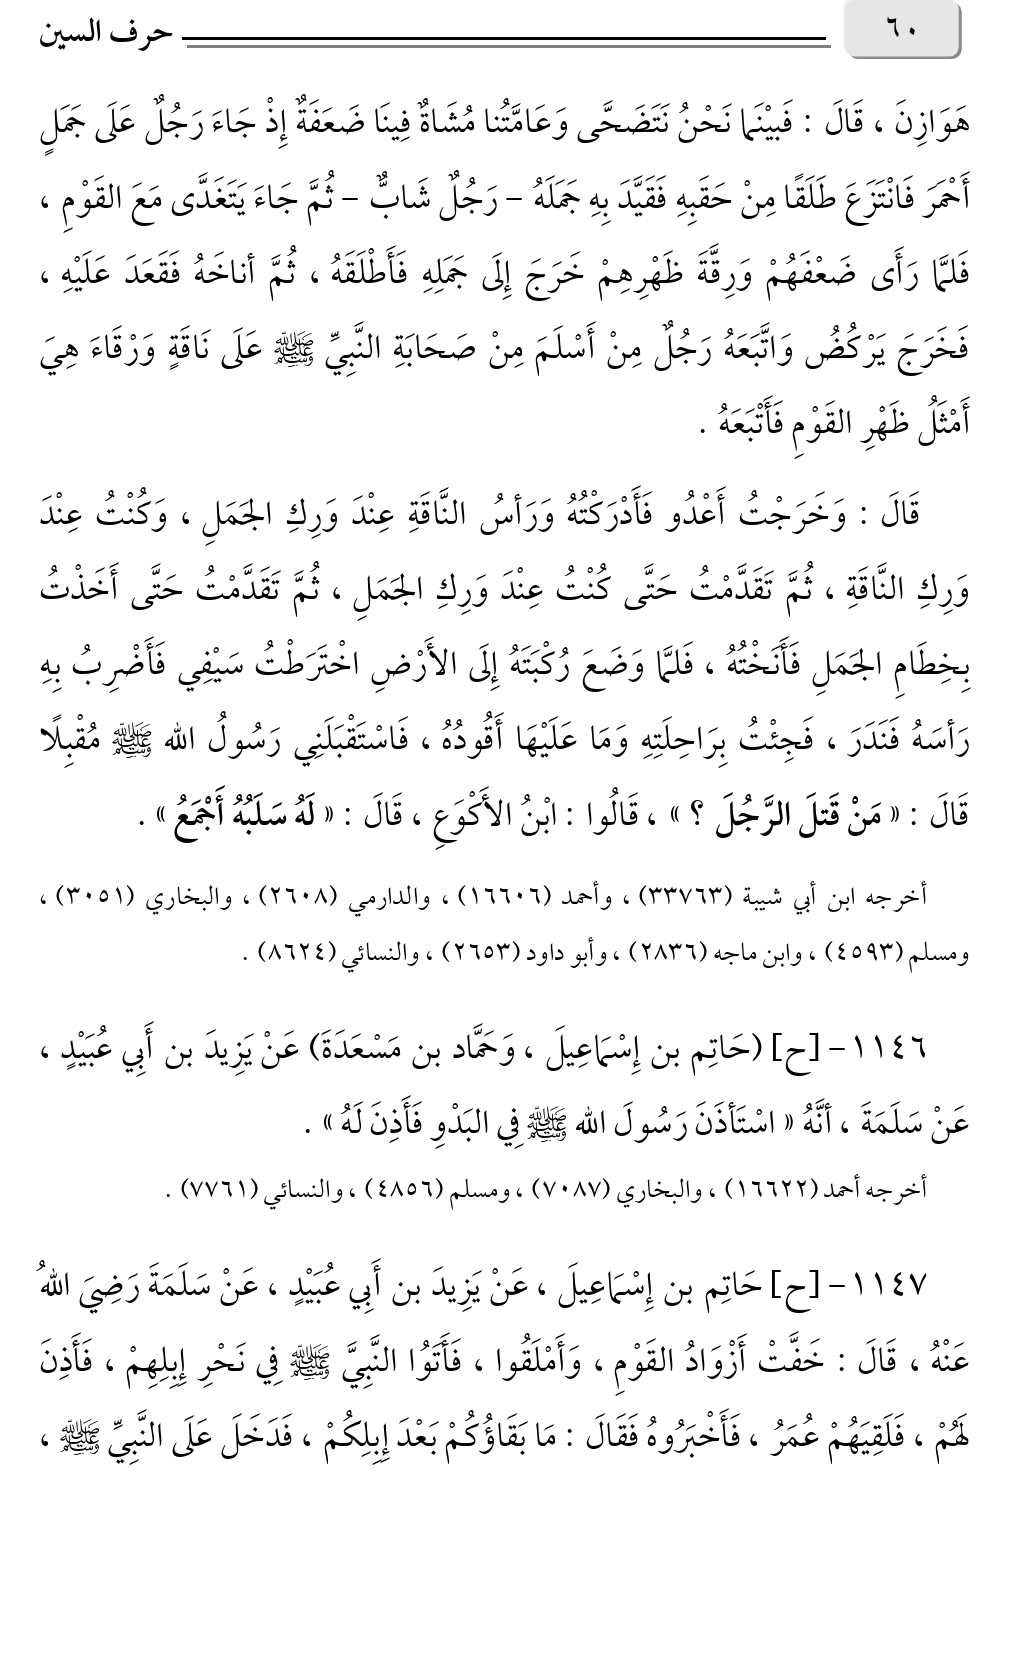 ٦٠ حرف السين
هَوَازِنَ ، قَالَ : فَبيْنَما نَحْنُ نَتَضَحَّى وَعَامَّتُنا مُشَاةٌ فِينَا ضَعَفَةٌ إِذْ جَاءَ رَجُلٌ عَلَى جَمَلٍ
أَحْمَرَ فَانْتَزَعَ طَلَقًا مِنْ حَقَبِهِ فَقَيَّدَ بِهِ جَمَلَهُ – رَجُلٌ شَابٌّ – ثُمَّ جَاءَ يَتَغَدَّى مَعَ القَوْمِ ،
فَلمَّا رَأَى ضَعْفَهُمْ وَرِقَّةَ ظَهْرِهِمْ خَرَجَ إِلَى جَمَلِهِ فَأَطْلَقَهُ ، ثُمَّ أناخَهُ فَقَعَدَ عَلَيْهِ ،
فَخَرَجَ يَرْكُضُ وَاتَّبَعَهُ رَجُلٌ مِنْ أَسْلَمَ مِنْ صَحَابَةِ النَّبِيِّ ﷺ عَلَى نَاقَةٍ وَرْقَاءَ هِيَ
أَمْثَلُ ظَهْرِ القَوْمِ فَأَتْبَعَهُ .
قَالَ : وَخَرَجْتُ أَعْدُو فَأَدْرَكْتُهُ وَرَأسُ النَّاقَةِ عِنْدَ وَرِكِ الجَمَلِ ، وَكُنْتُ عِنْدَ
وَرِكِ النَّاقَةِ ، ثُمَّ تَقَدَّمْتُ حَتَّى كُنْتُ عِنْدَ وَرِكِ الجَمَلِ ، ثُمَّ تَقَدَّمْتُ حَتَّى أَخَذْتُ
بِخِطَامِ الجَمَلِ فَأَنَخْتُهُ ، فَلمَّا وَضَعَ رُكْبَتَهُ إِلَى الأَرْضِ اخْتَرَطْتُ سَيْفِي فَأَضْرِبُ بِهِ
رَأسَهُ فَنَدَرَ ، فَجِئْتُ بِرَاحِلَتِهِ وَمَا عَلَيْهَا أَقُودُهُ ، فَاسْتَقْبَلَنِي رَسُولُ الله ﷺ مُقْبِلًا
قَالَ : « مَنْ قَتلَ الرَّجُلَ ؟ » ، قَالُوا : ابْنُ الأَكْوَعِ ، قَالَ : « لَهُ سَلَبُهُ أَجْمَعُ » .
أخرجه ابن أبي شيبة (٣٣٧٦٣) ، وأحمد (١٦٦٠٦) ، والدارمي (٢٦٠٨) ، والبخاري (٣٠٥١) ،
ومسلم (٤٥٩٣) ، وابن ماجه (٢٨٣٦) ، وأبو داود (٢٦٥٣) ، والنسائي (٨٦٢٤) .
١١٤٦– [ح] (حَاتِم بن إِسْمَاعِيلَ ، وَحَمَّاد بن مَسْعَدَةَ) عَنْ يَزِيدَ بن أَبِي عُبَيْدٍ ،
عَنْ سَلَمَةَ ، أنَّهُ « اسْتَأذَنَ رَسُولَ الله ﷺ فِي البَدْوِ فَأَذِنَ لَهُ » .
أخرجه أحمد (١٦٦٢٢) ، والبخاري (٧٠٨٧) ، ومسلم (٤٨٥٦) ، والنسائي (٧٧٦١) .
١١٤٧– [ح] حَاتِم بن إِسْمَاعِيلَ ، عَنْ يَزِيدَ بن أَبِي عُبَيْدٍ ، عَنْ سَلَمَةَ رَضِيَ اللهُ
عَنْهُ ، قَالَ : خَفَّتْ أَزْوَادُ القَوْمِ ، وَأَمْلَقُوا ، فَأَتَوُا النَّبِيَّ ﷺ فِي نَحْرِ إِبِلِهِمْ ، فَأَذِنَ
لَهُمْ ، فَلَقِيَهُمْ عُمَرُ ، فَأَخْبَرُوهُ فَقَالَ : مَا بَقَاؤُكُمْ بَعْدَ إِبِلِكُمْ ، فَدَخَلَ عَلَى النَّبِيِّ ﷺ ،